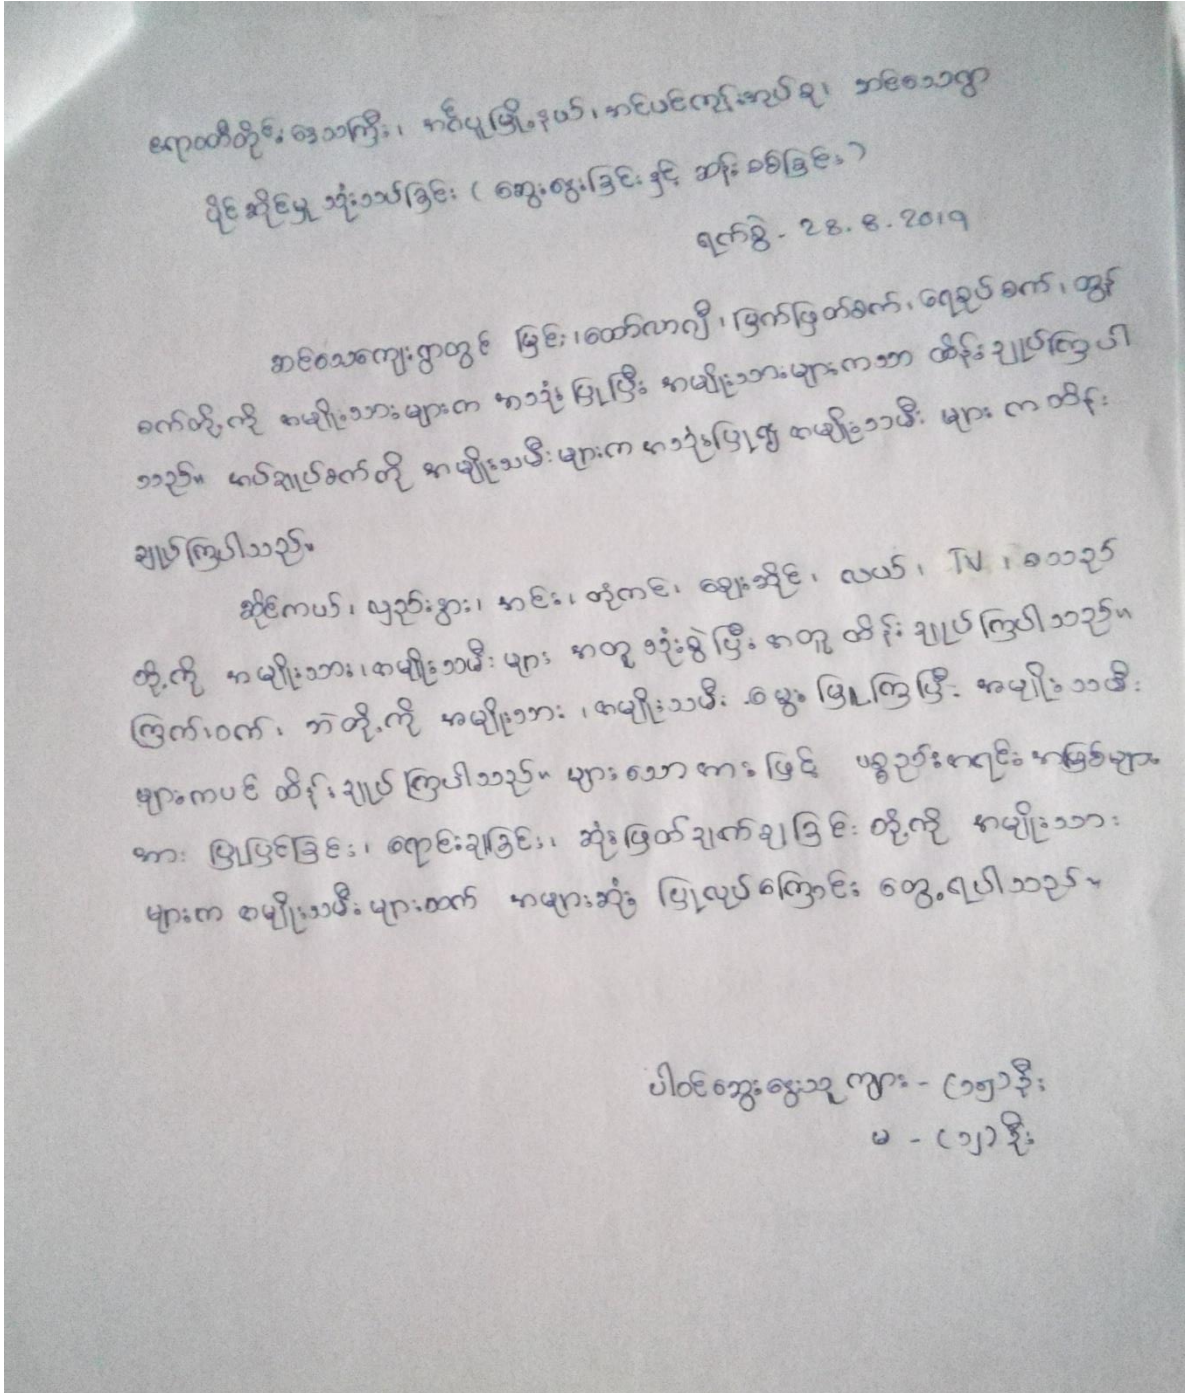 ဧရာဝတီတိုင်းဒေသကြီး၊ အင်္ဂပူမြို့နယ်၊ အင်ပင်ကုန်းအုပ်စု၊ ဆင်သေရွာ
ပိုင်ဆိုင်မှု သုံးသပ်ခြင်း ( ဆွေးနွေးခြင်းနှင့် ဆန်းစစ်ခြင်း )
ရက်စွဲ - 28.8.2019
ဆင်သေကျေးရွာတွင် မြင်း၊ ထော်လာဂျီ၊ မြက်ဖြတ်စက်၊ ရေစုပ်စက်၊ ထွန်
စက်တို့ကို အမျိုးသားများက အသုံးပြုပြီး အမျိုးသားများကသာ ထိန်းချုပ်ကြပါ
သည်။ အပ်ချုပ်စက်တို့ အမျိုးသမီးများက အသုံးပြု၍ အမျိုးသမီး များ က ထိန်း
ချုပ်ကြပါသည်။
ဆိုင်ကယ်၊ လှည်းနွား၊ အင်း၊ တံုကင်၊ ဈေးဆိုင်၊ လယ်၊ TV ၊ စသည်
တို့ကို အမျိုးသား၊ အမျိုးသမီး များ အတူ သုံးစွဲပြီး အတူ ထိန်းချုပ်ကြပါသည်။
ကြက်၊ ဝက်၊ ဘဲတို့ကို အမျိုးသား ၊ အမျိုးသမီး မွေးမြူကြပြီး အမျိုးသမီး
များကပင် ထိန်းချုပ်ကြပါသည်။ များသောအားဖြင့် ပစ္စည်းအရင်းအမြစ်များ
အား ပြုပြင်ခြင်း၊ ရောင်းချခြင်း၊ ဆုံးဖြတ်ချက်ချခြင်း တို့ကို အမျိုးသား
များက အမျိုးသမီးများထက် အများဆုံး ပြုလုပ်ကြောင်း တွေ့ရပါသည်။
ပါဝင်ဆွေးနွေးသူ ကျား - (၁၅) ဦး
မ - (၁၂) ဦး